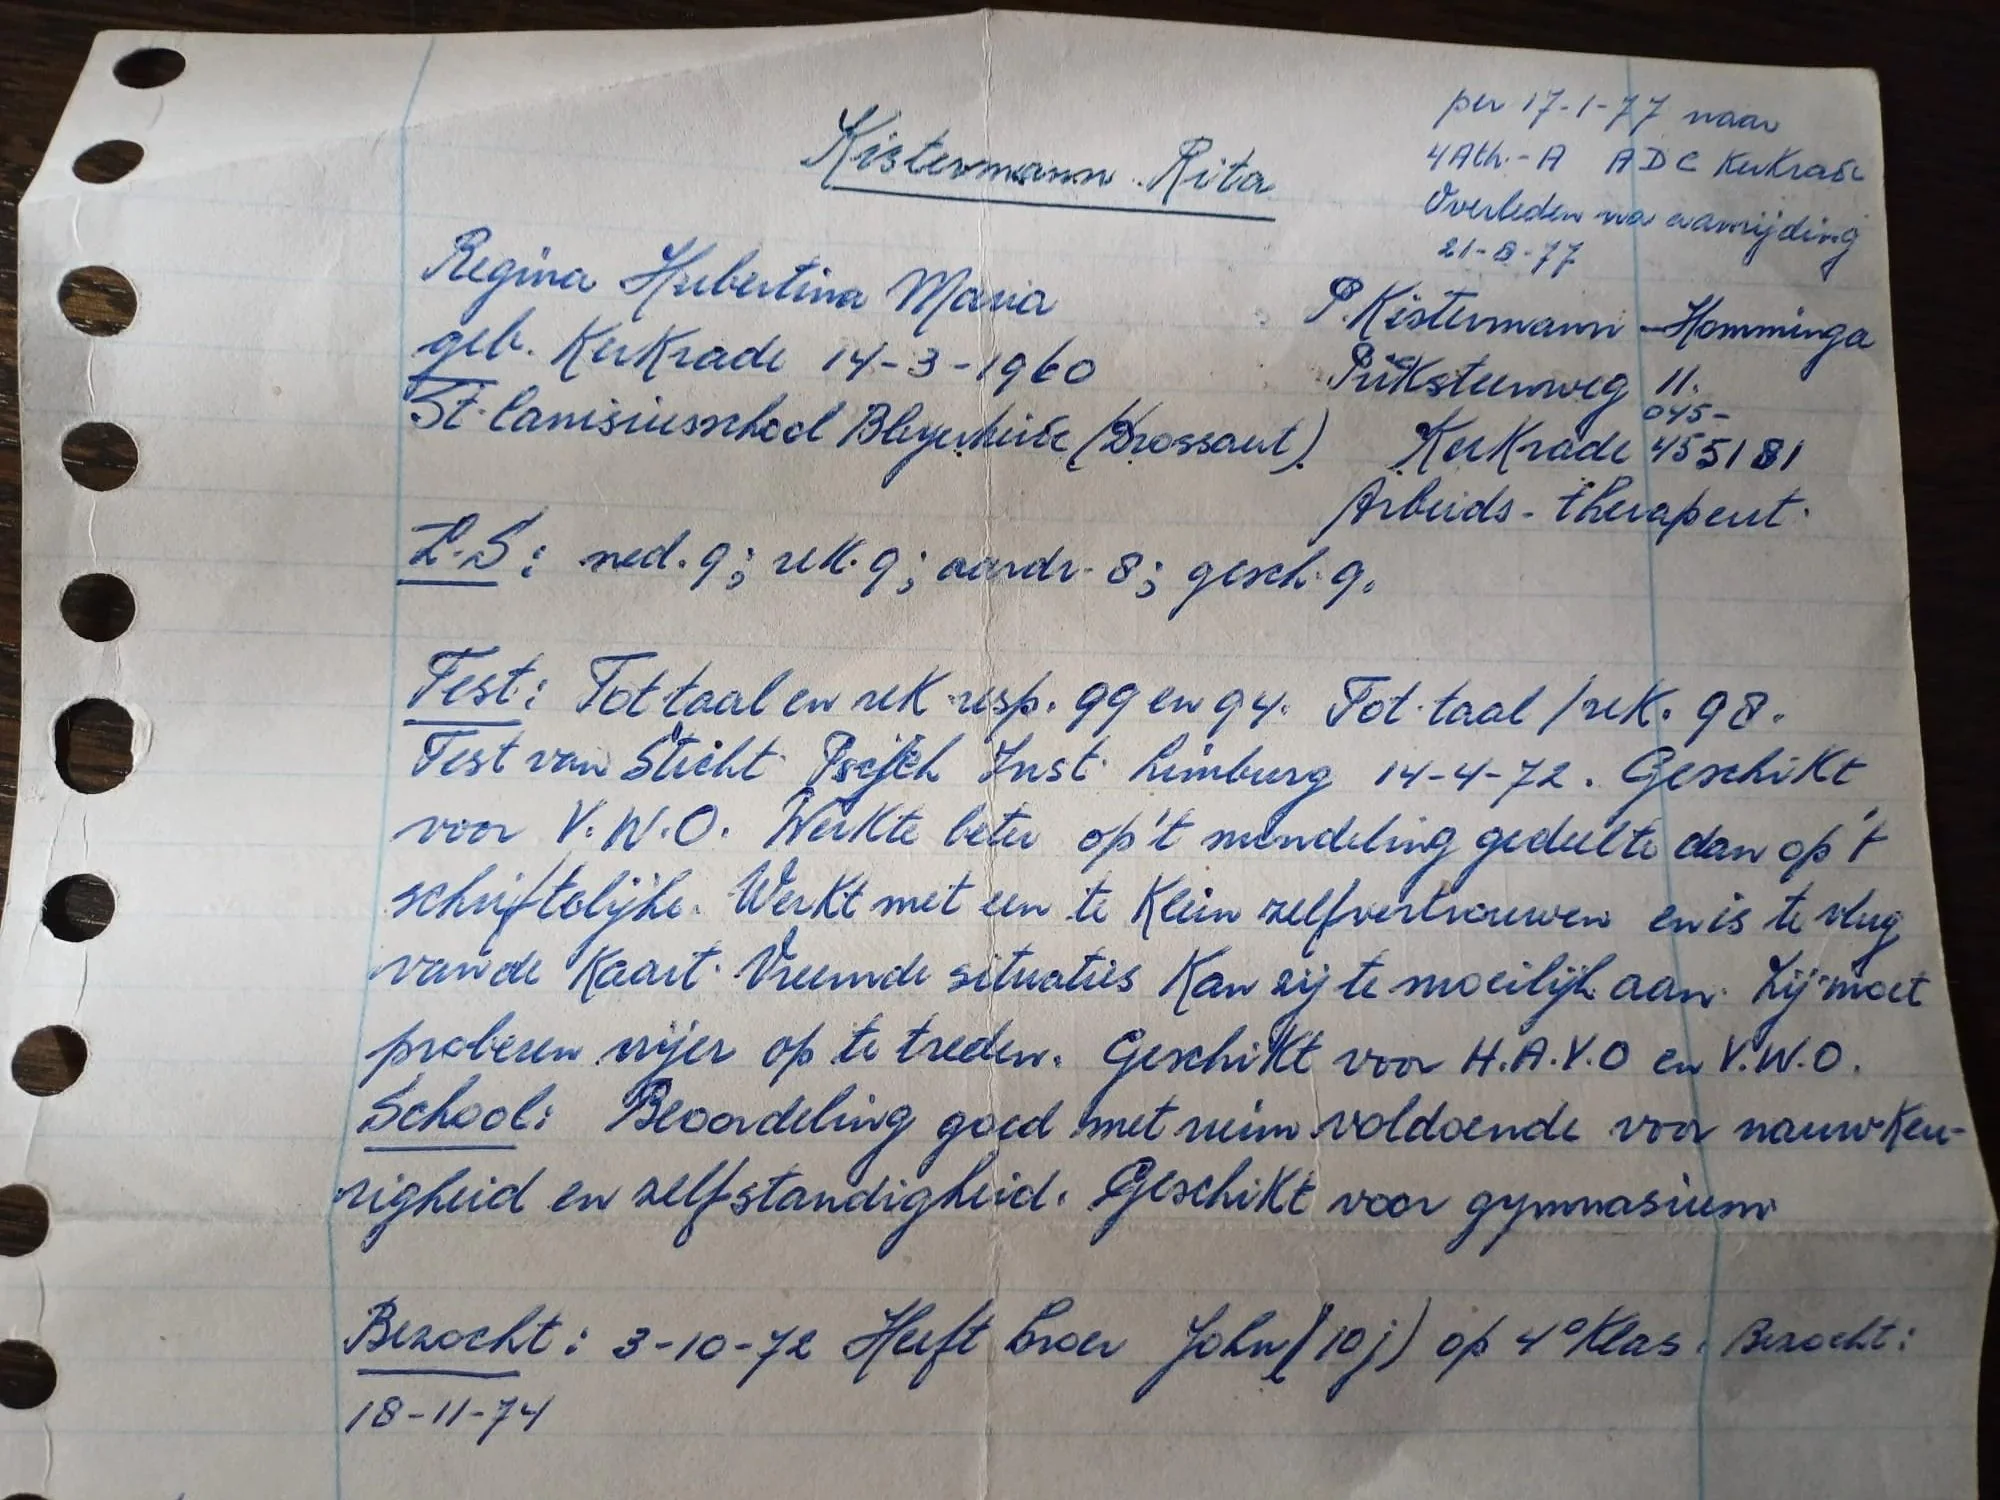 Kistermann Rita
per 17-1-77 naar
4Ath.-A ADC Kerkrade
Overleden na aanrijding
21-8-77
Regina Hubertina Maria
geb. Kerkrade 14-3-1960
St. Canisiusschool Bleyerheide (Drossaert).
P. Kistermann-Homminga
Pricksteenweg 11.
045-
Kerkrade 455181
Arbeids-therapeut.
L.S: ned. 9; rek. 9; aardr. 8; gesch. 9.
Test: Tot taal en rek resp. 99 en 94. Tot. taal/rek. 98.
Test van Sticht. Psych Inst. Limburg 14-4-72. Geschikt
voor V.W.O. Werkte beter op 't mondeling gedeelte dan op 't
schriftelijke. Werkt met een te klein zelfvertrouwen en is te vlug
van de kaart. Vreemde situaties kan zij te moeilijk aan. Zij moet
proberen vrijer op te treden. Geschikt voor H.A.V.O en V.W.O.
School: Beoordeling goed met ruim voldoende voor nauwkeu-
righeid en zelfstandigheid. Geschikt voor gymnasium.
Bezocht: 3-10-72 Heeft broer John (10j) op 4e klas. Bezocht:
18-11-74